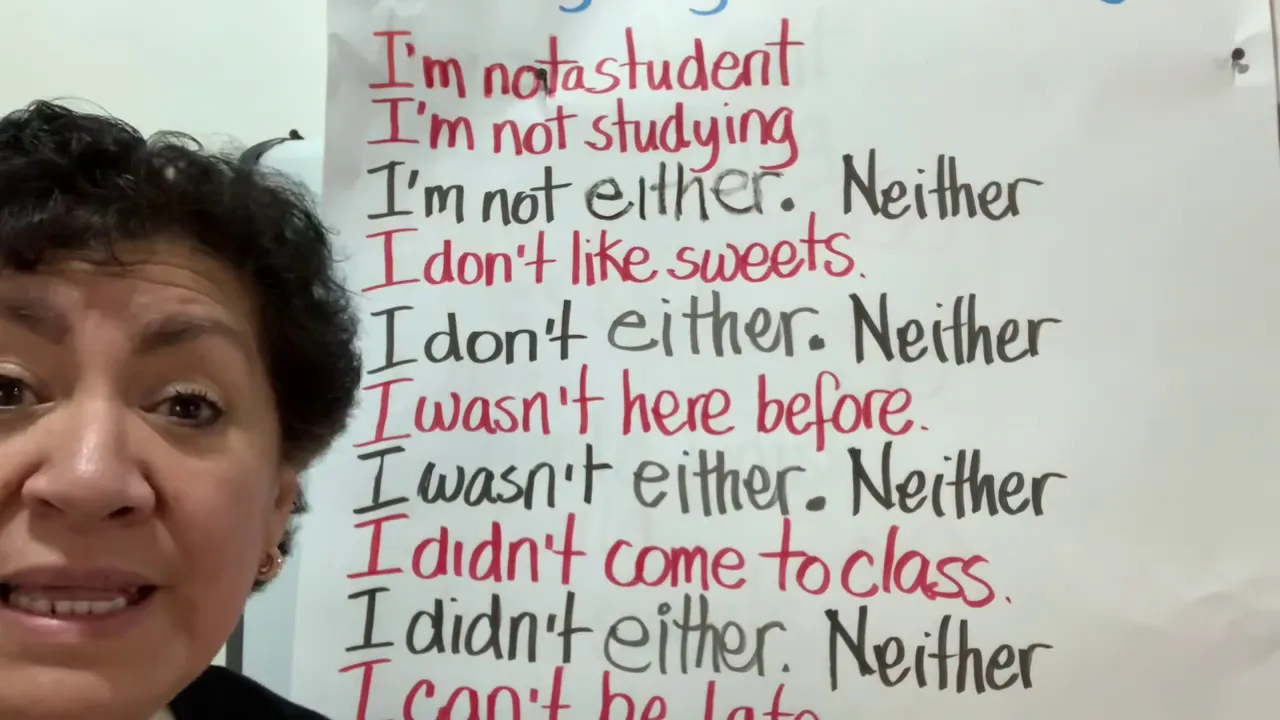 I'm not a student
I'm not studying
I'm not either. Neither
I don't like sweets.
I don't either. Neither
I wasn't here before.
I wasn't either. Neither
I didn't come to class.
I didn't either. Neither
I can't be late